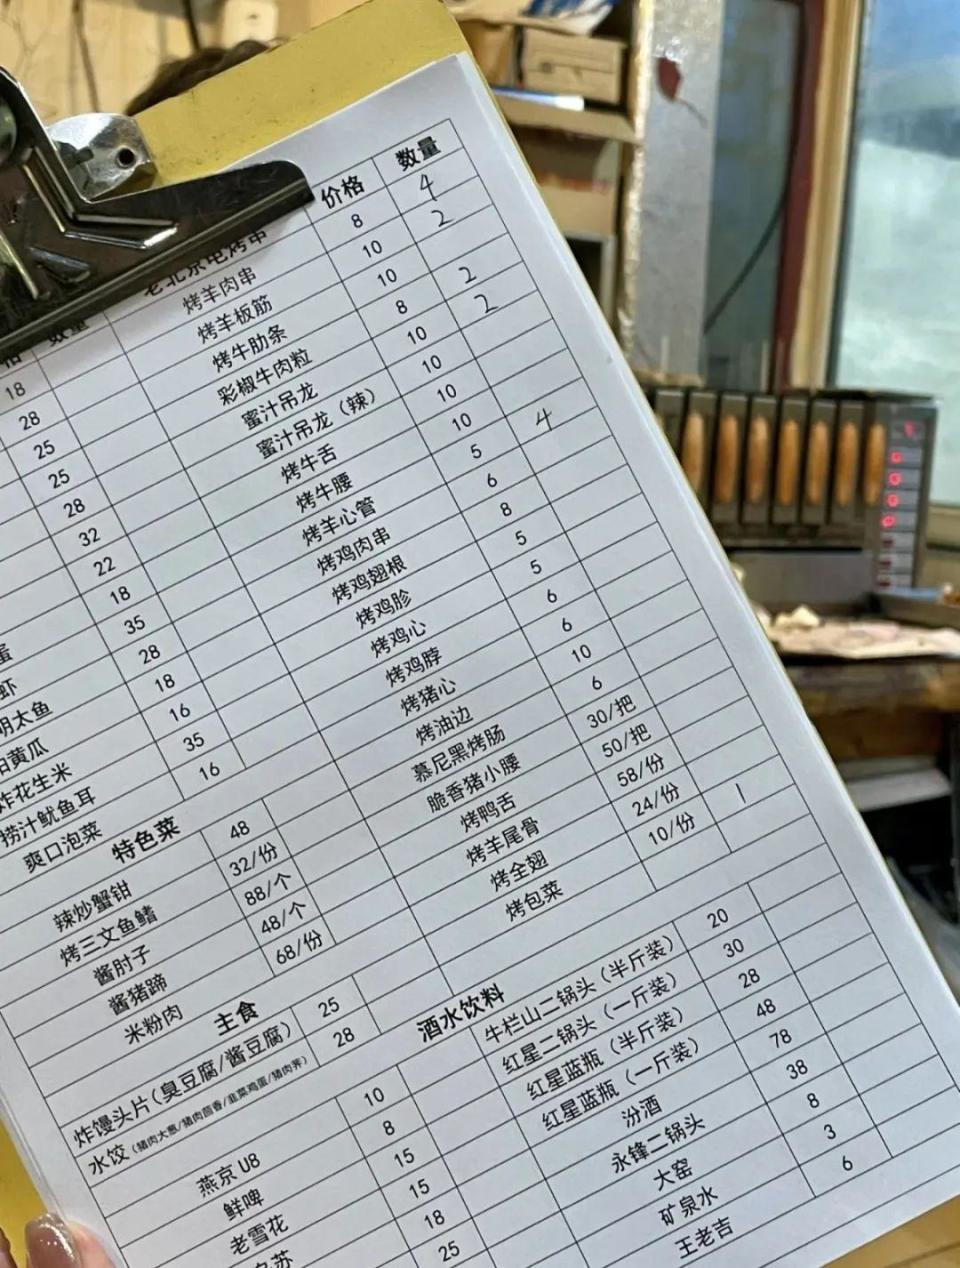 数量
18
28
25
25
28
32
22
蛋 18
虾 35
明太鱼 28
黄瓜 18
炸花生米 16
捞汁鱿鱼耳 35
爽口泡菜 16
特色菜
辣炒蟹钳 48
烤三文鱼鳍 32/份
酱肘子 88/个
酱猪蹄 48/个
米粉肉 68/份
主食
炸馒头片（臭豆腐/酱豆腐） 25
水饺（猪肉大葱/猪肉茴香/韭菜鸡蛋/猪肉荠） 28
燕京 U8 10
鲜啤 8
老雪花 15
乌苏 15
18
25
老北京电烤串 价格 数量
烤羊肉串 8 4
烤羊板筋 10 2
烤牛肋条 10
彩椒牛肉粒 8 2
蜜汁吊龙 10 2
蜜汁吊龙（辣） 10
烤牛舌 10
烤牛腰 10
烤羊心管 5 4
烤鸡肉串 6
烤鸡翅根 8
烤鸡胗 5
烤鸡心 5
烤鸡脖 6
烤猪心 6
烤油边 10
慕尼黑烤肠 6
脆香猪小腰 30/把
烤鸭舌 50/把
烤羊尾骨 58/份
烤全翅 24/份
烤包菜 10/份 1
酒水饮料
牛栏山二锅头（半斤装） 20
红星二锅头（一斤装） 30
红星蓝瓶（半斤装） 28
红星蓝瓶（一斤装） 48
汾酒 78
永锋二锅头 38
大窑 8
矿泉水 3
王老吉 6